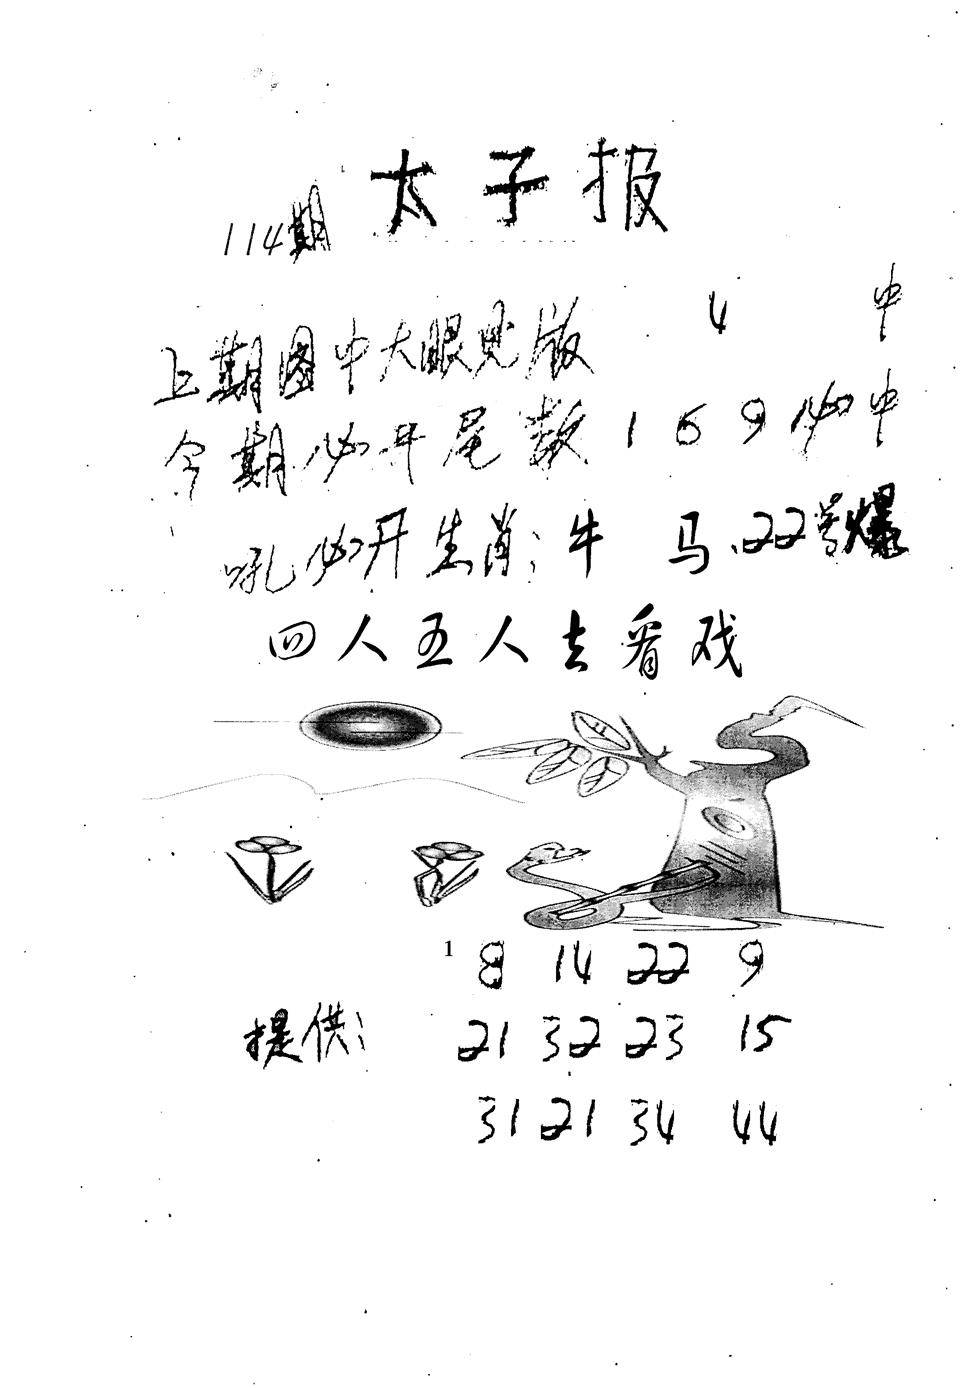 太子报
114期
上期图中大眼见版 4 中
今期必开尾数 1 6 9 必中
吼必开生肖: 牛 马.22号爆
四人五人去看戏
1 8 14 22 9
提供: 21 32 23 15
31 21 34 44